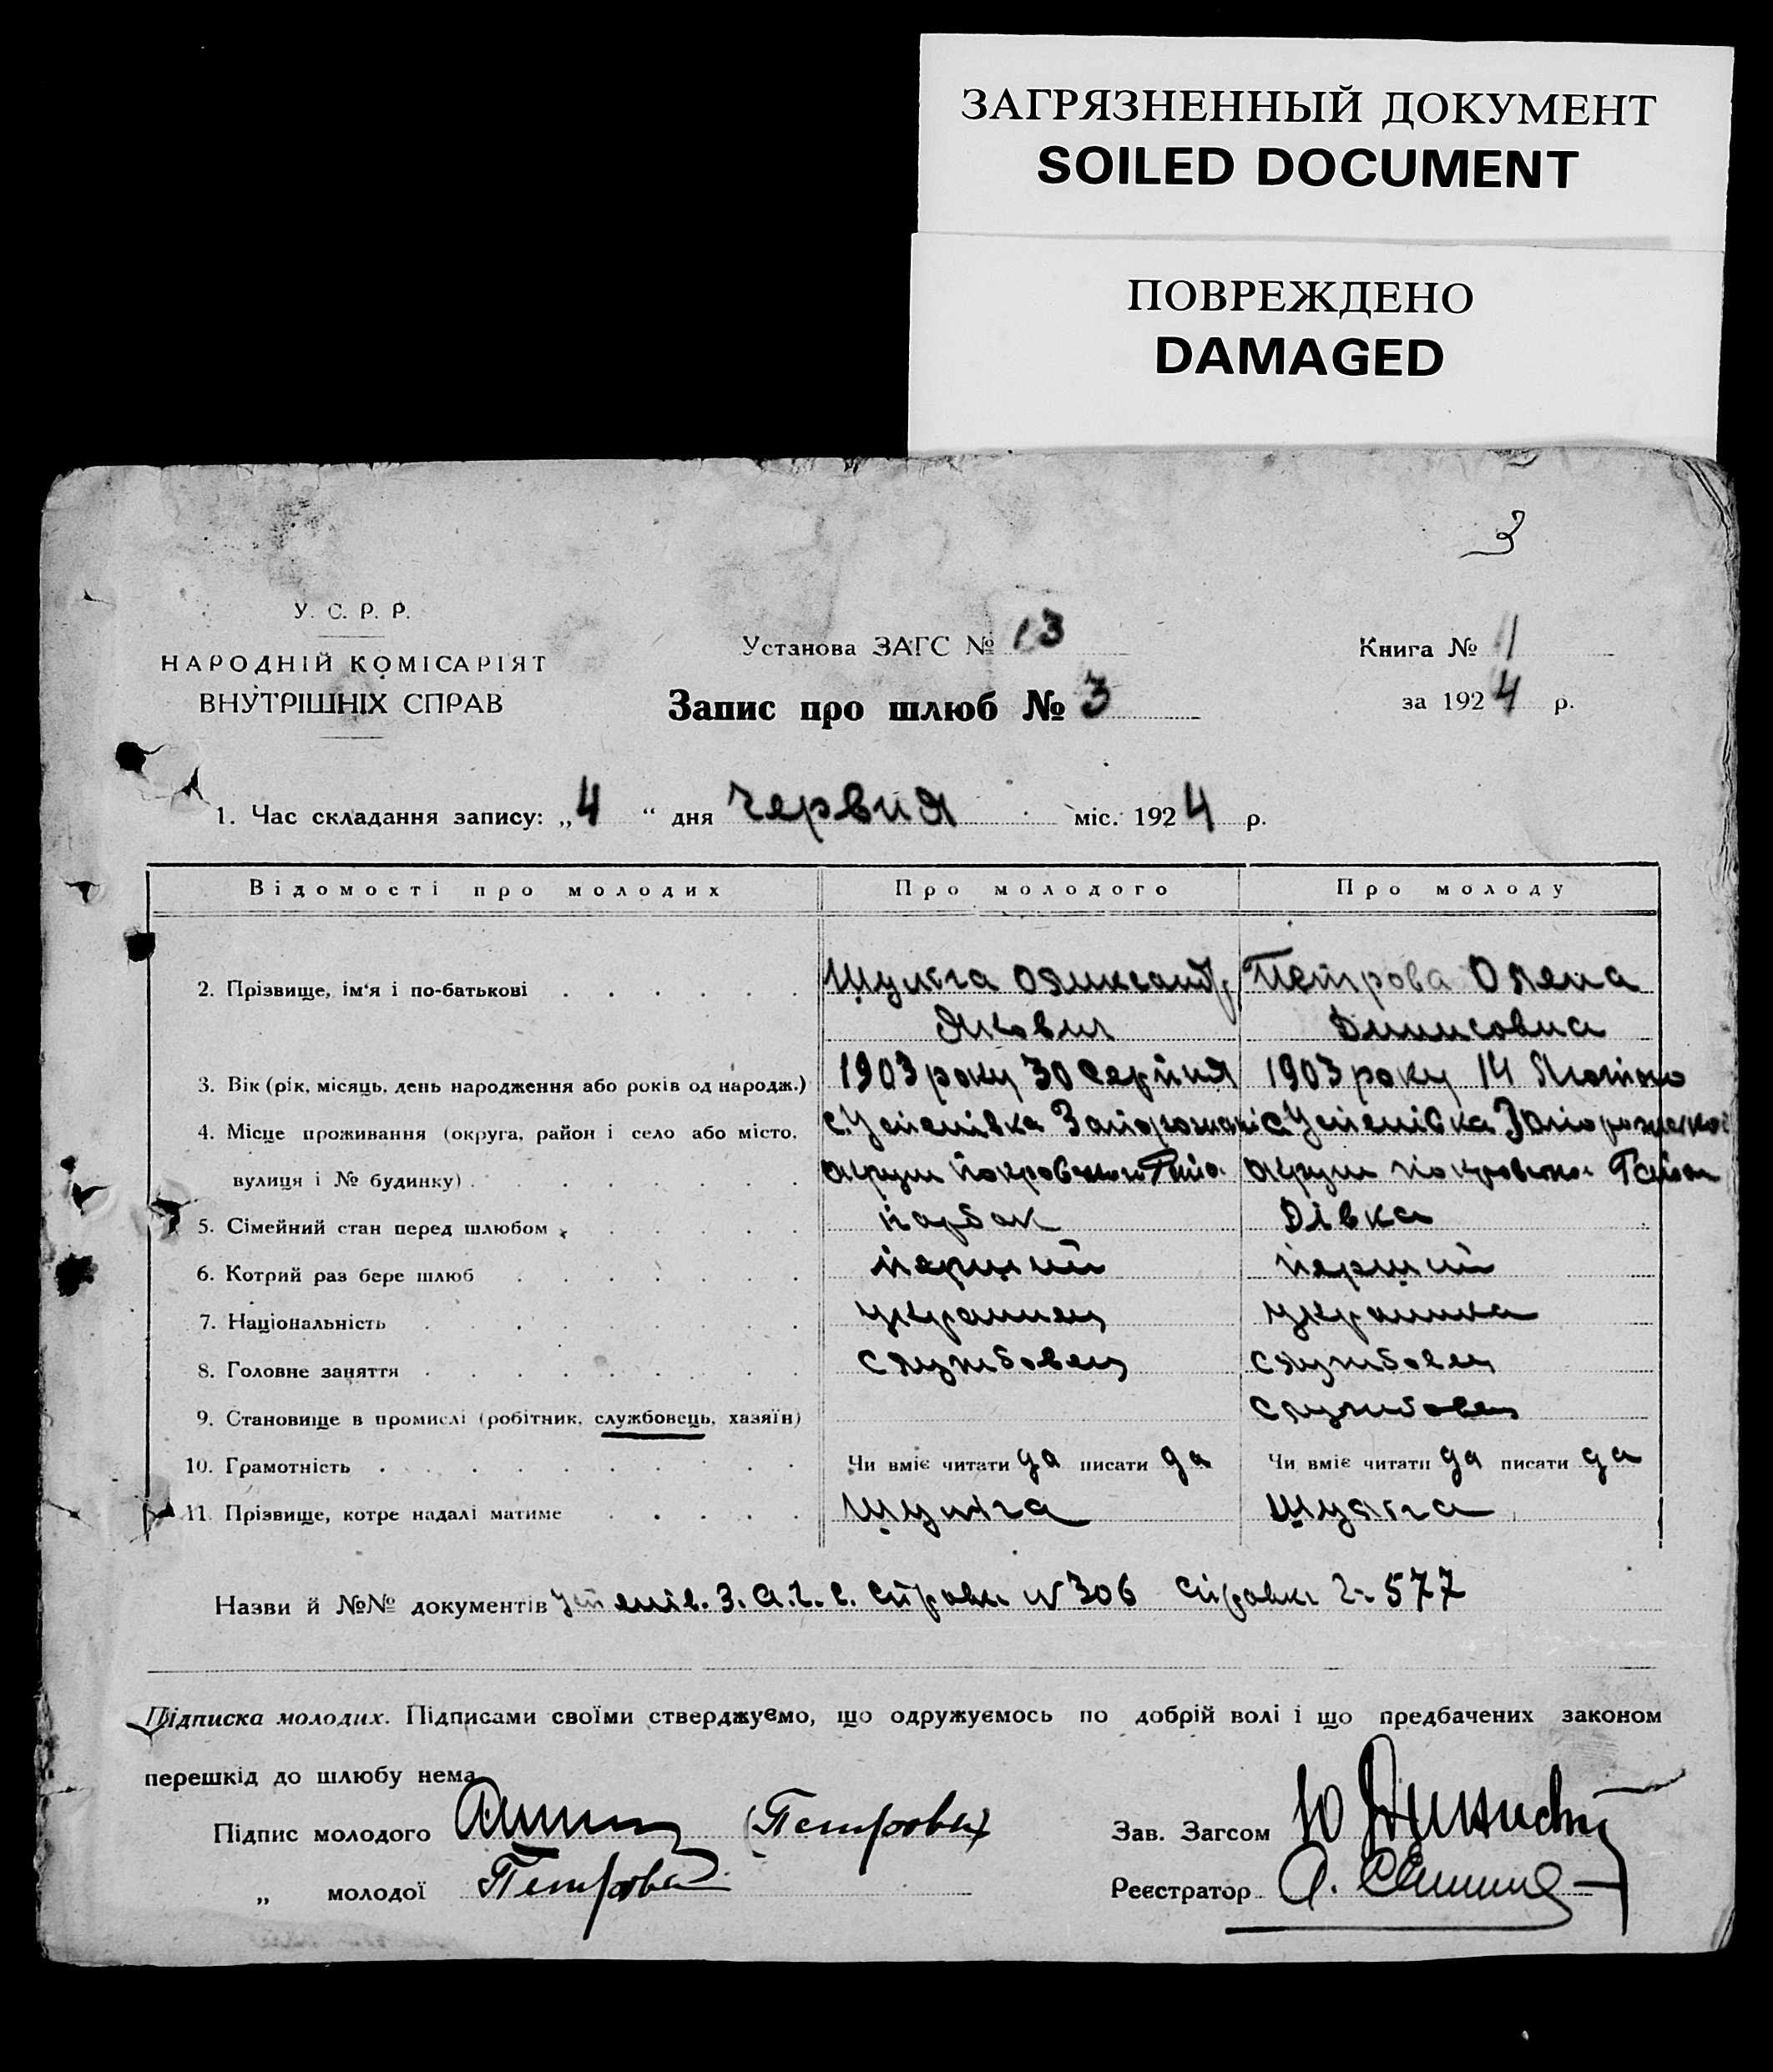 ЗАГРЯЗНЕННЫЙ ДОКУМЕНТ
SOILED DOCUMENT
ПОВРЕЖДЕНО
DAMAGED
3
У. С. Р. Р.
НАРОДНІЙ КОМІСАРІЯТ
ВНУТРІШНІХ СПРАВ
Установа ЗАГС № 13
Запис про шлюб № 3
Книга № 1
за 1924 р.
1. Час складання запису: „4“ дня червня міс. 1924 р.
Відомості про молодих Про молодого Про молоду
2. Прізвище, ім'я і по-батькові Шульга Олександр Петрова Олена
Якович Динисовна
3. Вік (рік, місяць, день народження або років од народж.) 1903 року 30 серпня 1903 року 14 Лютого
4. Місце проживання (округа, район і село або місто, с. Успенівка с. Успенівка
вулиця і № будинку) округи Покровського округи
5. Сімейний стан перед шлюбом парбок Дівка
6. Котрий раз бере шлюб перший перший
7. Національність украинец украинка
8. Головне заняття службовец службовец
9. Становище в промислі (робітник, службовець, хазяїн) службовец
10. Грамотність Чи вміє читати да писати да Чи вміє читати да писати да
11. Прізвище, котре надалі матиме Шульга Шульга
Назви й №№ документів Успенів. З.А.Г.С. Справка № 306 Справка 577
Підписка молодих. Підписами своїми стверджуємо, що одружуємось по добрій волі і що предбачених законом
перешкід до шлюбу нема
Підпис молодого (Петрова)
„ молодої Петрова
Зав. Загсом
Реєстратор